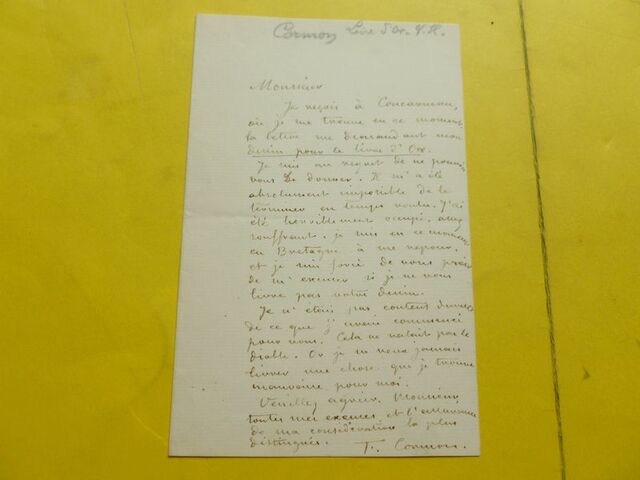 Cormon Livre d'Or. V. H.
Monsieur
Je reçois à Concarneau,
où je me trouve en ce moment
la lettre me demandant mon
dessin pour le livre d'Or.
Je suis au regret de ne pouvoir
vous le donner. Il m'a été
absolument impossible de le
terminer en temps voulu. J'ai
été horriblement occupé, assez
souffrant. je suis en ce moment
en Bretagne à me reposer.
et je suis forcé de vous prier
de m'excuser si je ne vous
livre pas votre dessin.
Je n'étais pas content d'ailleurs
de ce que j'avais commencé
pour vous. Cela ne valait pas le
diable. Or je ne veux jamais
livrer une chose que je trouve
mauvaise pour moi.
Veuillez agréer, Monsieur,
toutes mes excuses et l'assurance
de ma considération la plus
distinguée. F. Cormon.